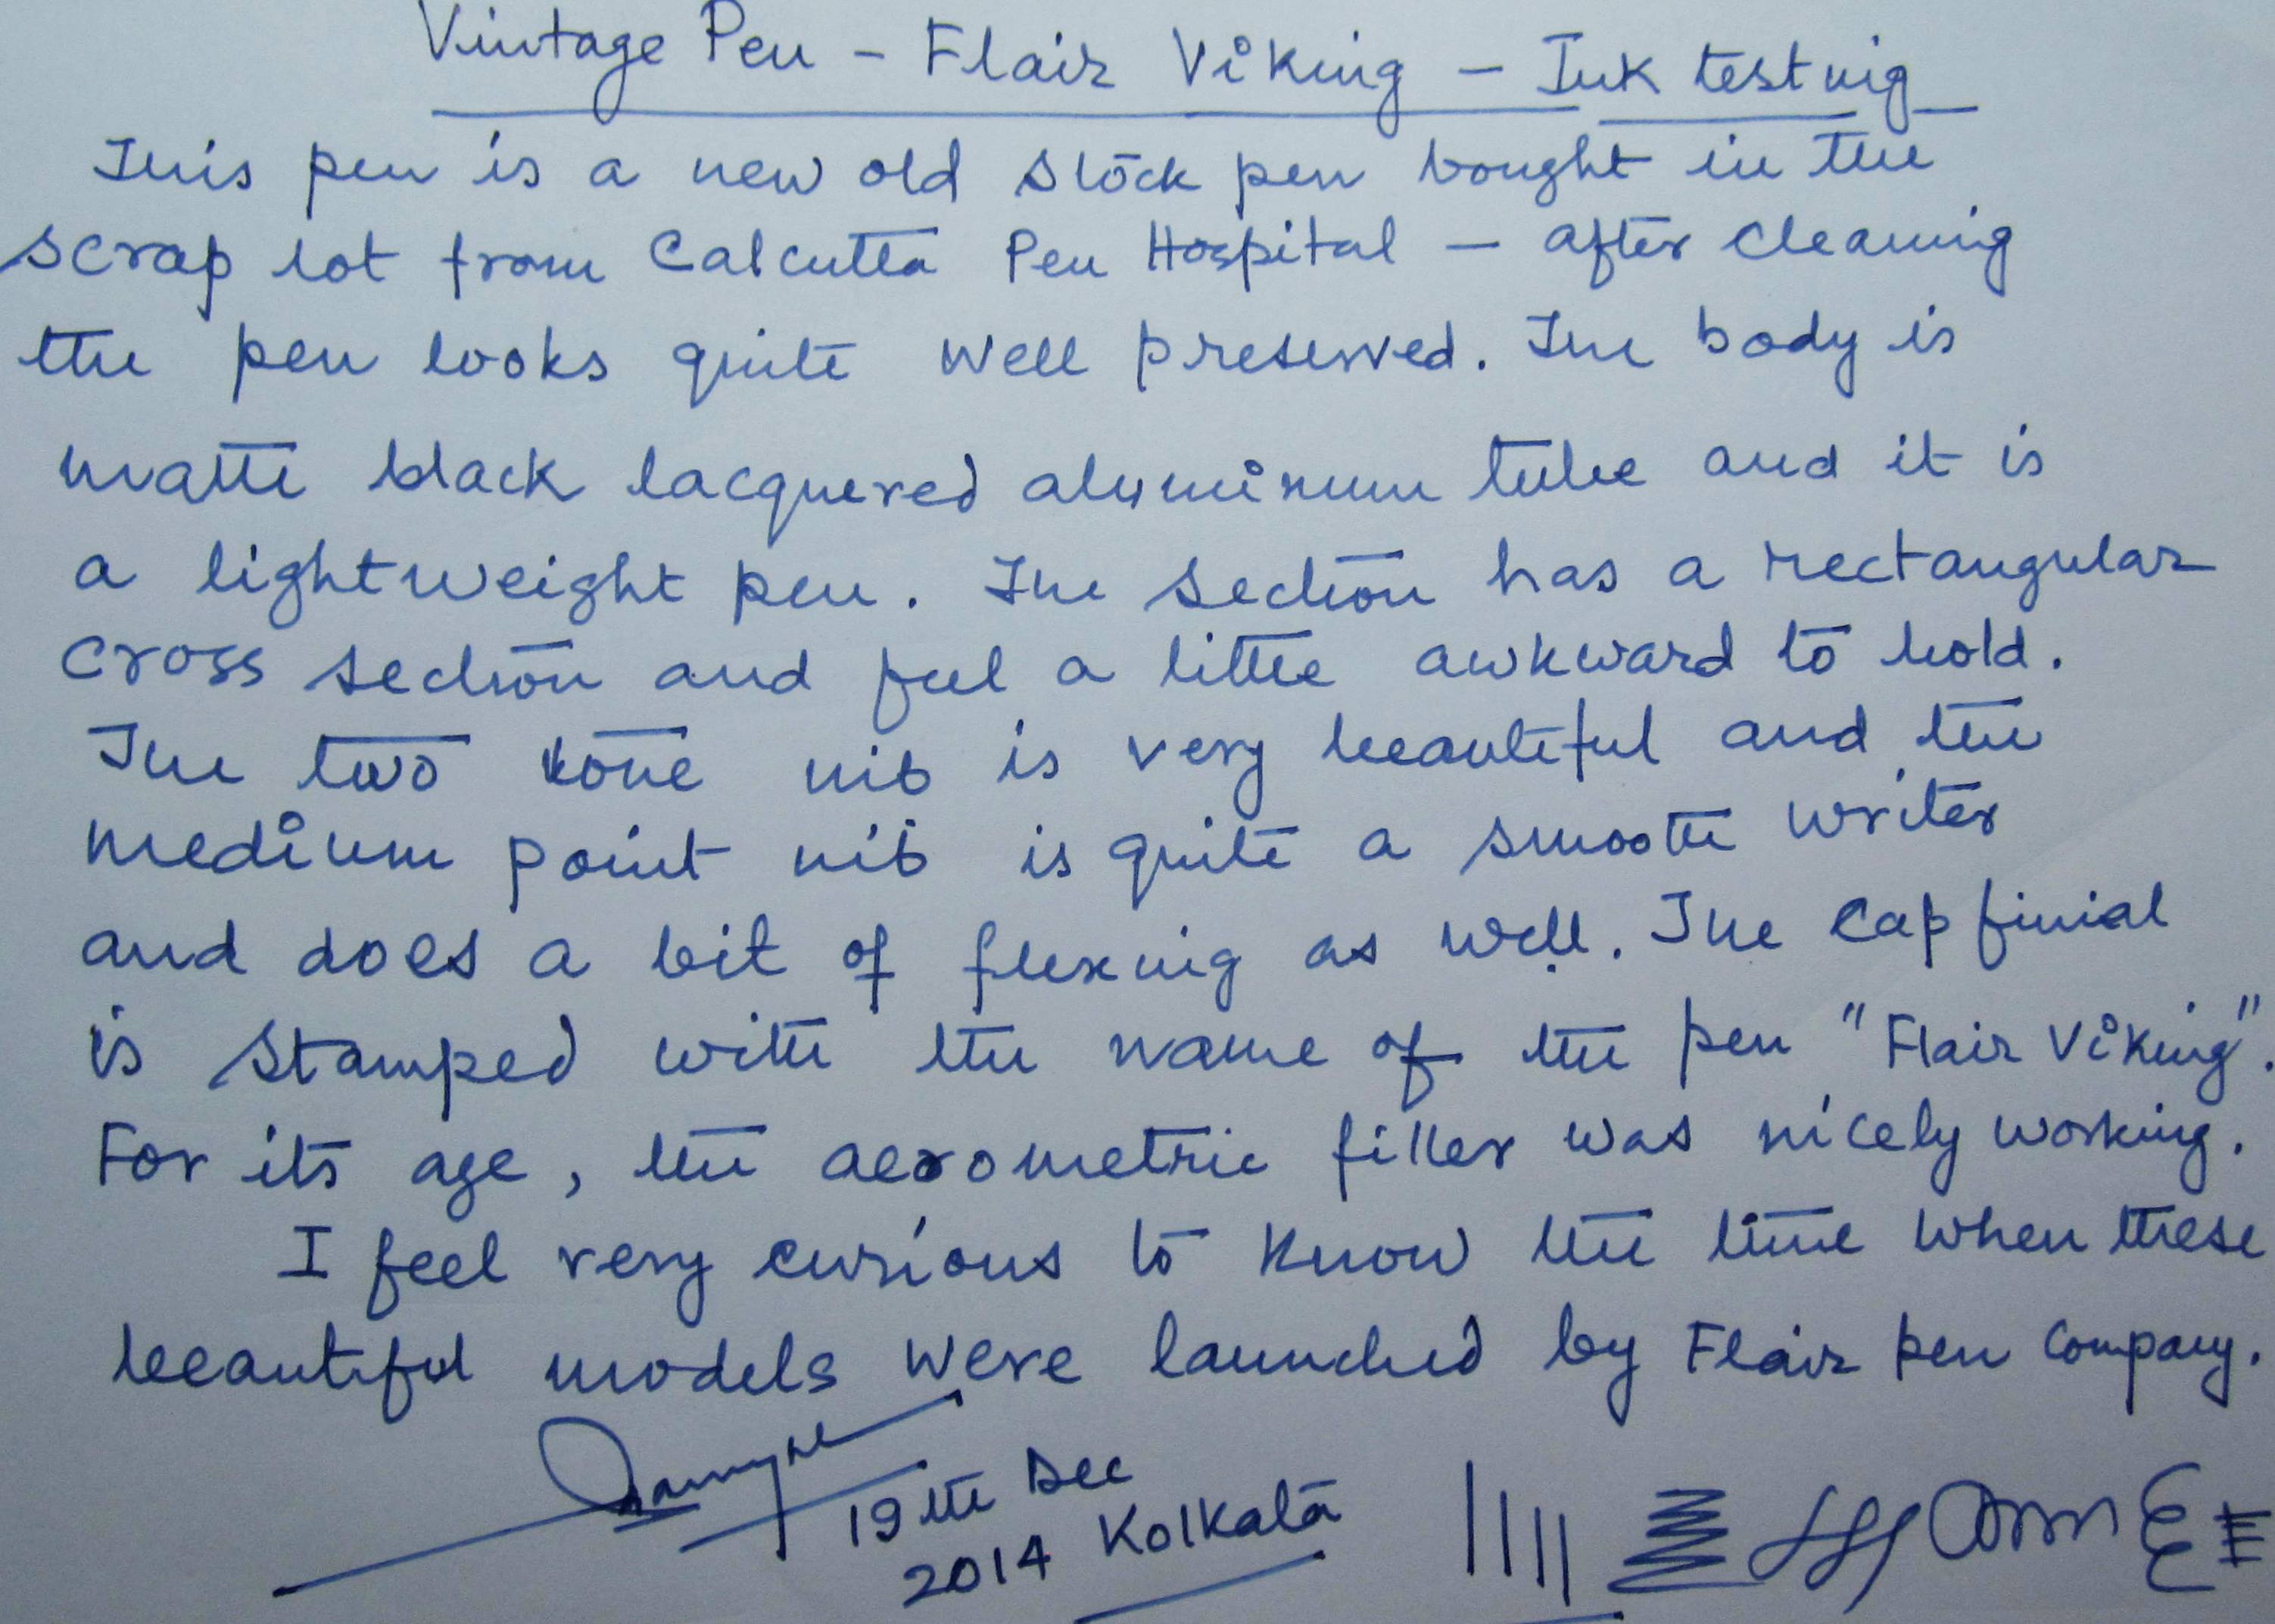 Vintage Pen - Flair Viking - Ink testing
This pen is a new old stock pen bought in the
scrap lot from Calcutta Pen Hospital - after cleaning
the pen looks quite well preserved. The body is
matte black lacquered aluminum tube and it is
a lightweight pen. The section has a rectangular
cross section and feel a little awkward to hold.
The two tone nib is very beautiful and the
medium point nib is quite a smooth writer
and does a bit of flexing as well. The cap finial
is stamped with the name of the pen "Flair Viking".
For its age, the aerometric filler was nicely working.
I feel very curious to know the time when these
beautiful models were launched by Flair pen company.
19th Dec
2014 Kolkata